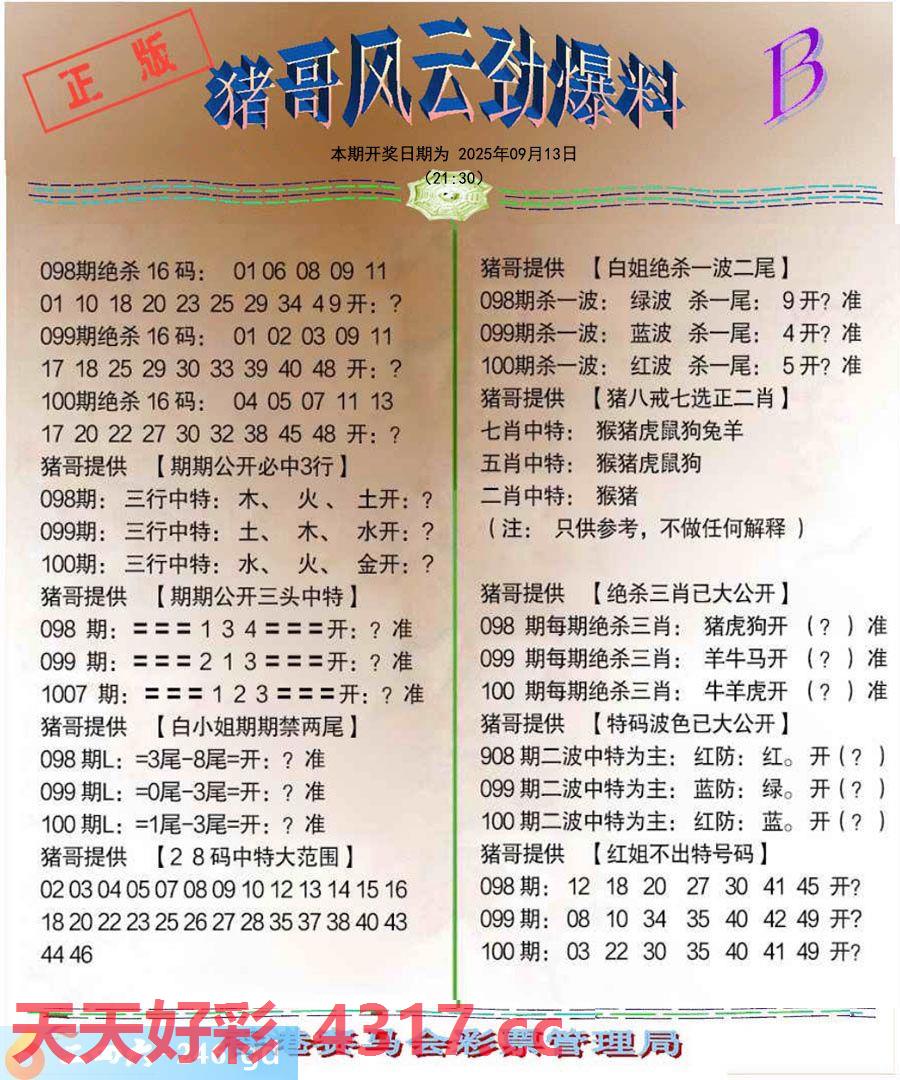 正版
猪哥风云劲爆料
B
本期开奖日期为 2025年09月13日
（21:30）
098期绝杀16码： 01 06 08 09 11
01 10 18 20 23 25 29 34 49开：?
099期绝杀16码： 01 02 03 09 11
17 18 25 29 30 33 39 40 48 开：?
100期绝杀16码： 04 05 07 11 13
17 20 22 27 30 32 38 45 48 开：?
猪哥提供 【期期公开必中3行】
098期：三行中特：木、 火 、 土开：?
099期：三行中特：土、 木、 水开：?
100期：三行中特：水、 火、 金开：?
猪哥提供 【期期公开三头中特】
098 期：===134===开：? 准
099 期：===213===开：? 准
1007 期：===123===开：? 准
猪哥提供 【白小姐期期禁两尾】
098期L：=3尾-8尾=开：? 准
099期L：=0尾-3尾=开：? 准
100期L：=1尾-3尾=开：? 准
猪哥提供 【28码中特大范围】
02 03 04 05 07 08 09 10 12 13 14 15 16
18 20 22 23 25 26 27 28 35 37 38 40 43
44 46
猪哥提供 【白姐绝杀一波二尾】
098期杀一波： 绿波 杀一尾： 9开? 准
099期杀一波： 蓝波 杀一尾： 4开? 准
100期杀一波： 红波 杀一尾： 5开? 准
猪哥提供 【猪八戒七选正二肖】
七肖中特： 猴猪虎鼠狗兔羊
五肖中特： 猴猪虎鼠狗
二肖中特： 猴猪
（注： 只供参考，不做任何解释 ）
猪哥提供 【绝杀三肖已大公开】
098 期每期绝杀三肖： 猪虎狗开 （? ）准
099 期每期绝杀三肖： 羊牛马开 （? ）准
100 期每期绝杀三肖： 牛羊虎开 （? ）准
猪哥提供 【特码波色已大公开】
908期二波中特为主： 红防： 红。 开(? )
099期二波中特为主： 蓝防： 绿。 开(? )
100期二波中特为主： 红防： 蓝。 开(? )
猪哥提供 【红姐不出特号码】
098期： 12 18 20 27 30 41 45 开?
099期： 08 10 34 35 40 42 49 开?
100期： 03 22 30 35 40 41 49 开?
天天好彩 4317.cc
港赛马会彩票管理局